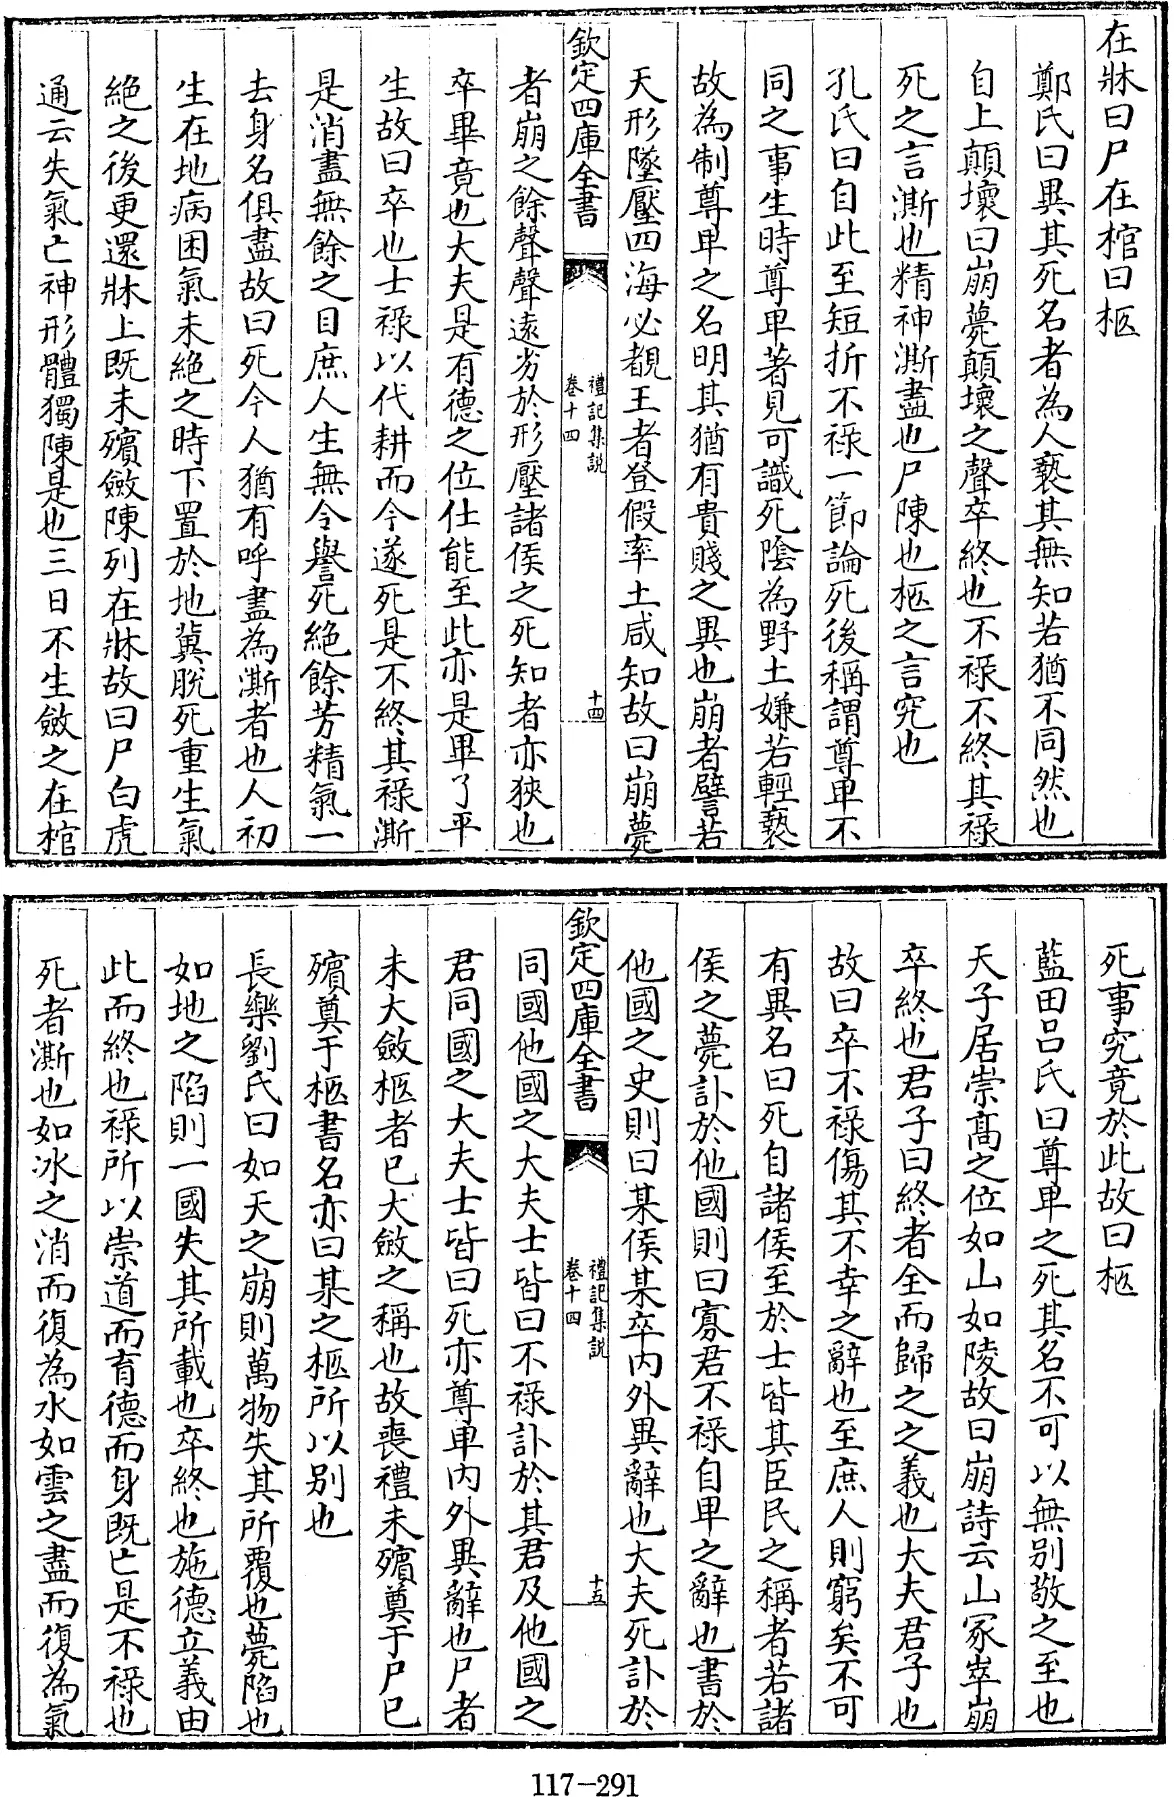 在牀曰尸在棺曰柩
鄭氏曰異其死名者為人褻其無知若猶不同然也
自上顛壞曰崩薨顛壞之聲卒終也不祿不終其祿
死之言澌也精神澌盡也尸陳也柩之言究也
孔氏曰自此至短折不祿一節論死後稱謂尊卑不
同之事生時尊卑著見可識死陰為野土嫌若輕褻
故為制尊卑之名明其猶有貴賤之異也崩者譬若
天形墜壓四海必覩王者登假率土咸知故曰崩薨
欽定四庫全書
禮記集說
卷十四
十四
者崩之餘聲聲遠劣於形壓諸侯之死知者亦狹也
卒畢竟也大夫是有德之位仕能至此亦是畢了平
生故曰卒也士祿以代耕而今遂死是不終其祿澌
是消盡無餘之目庶人生無令譽死絶餘芳精氣一
去身名俱盡故曰死今人猶有呼盡為澌者也人初
生在地病困氣未絶之時下置於地冀脫死重生氣
絶之後更還牀上既未殯斂陳列在牀故曰尸白虎
通云失氣亡神形體獨陳是也三日不生斂之在棺
死事究竟於此故曰柩
藍田呂氏曰尊卑之死其名不可以無别敬之至也
天子居崇髙之位如山如陵故曰崩詩云山冢崒崩
卒終也君子曰終者全而歸之之義也大夫君子也
故曰卒不祿傷其不幸之辭也至庶人則窮矣不可
有異名曰死自諸侯至於士皆其臣民之稱者若諸
侯之薨訃於他國則曰寡君不祿自卑之辭也書於
他國之史則曰某侯某卒内外異辭也大夫死訃於
欽定四庫全書
禮記集說
卷十四
十五
同國他國之大夫士皆曰不祿訃於其君及他國之
君同國之大夫士皆曰死亦尊卑内外異辭也尸者
未大斂柩者已大斂之稱也故喪禮未殯奠于尸已
殯奠于柩書名亦曰某之柩所以别也
長樂劉氏曰如天之崩則萬物失其所覆也薨陷也
如地之陷則一國失其所載也卒終也施德立義由
此而終也祿所以崇道而育德而身既亡是不祿也
死者澌也如冰之消而復為水如雲之盡而復為氣
117-291